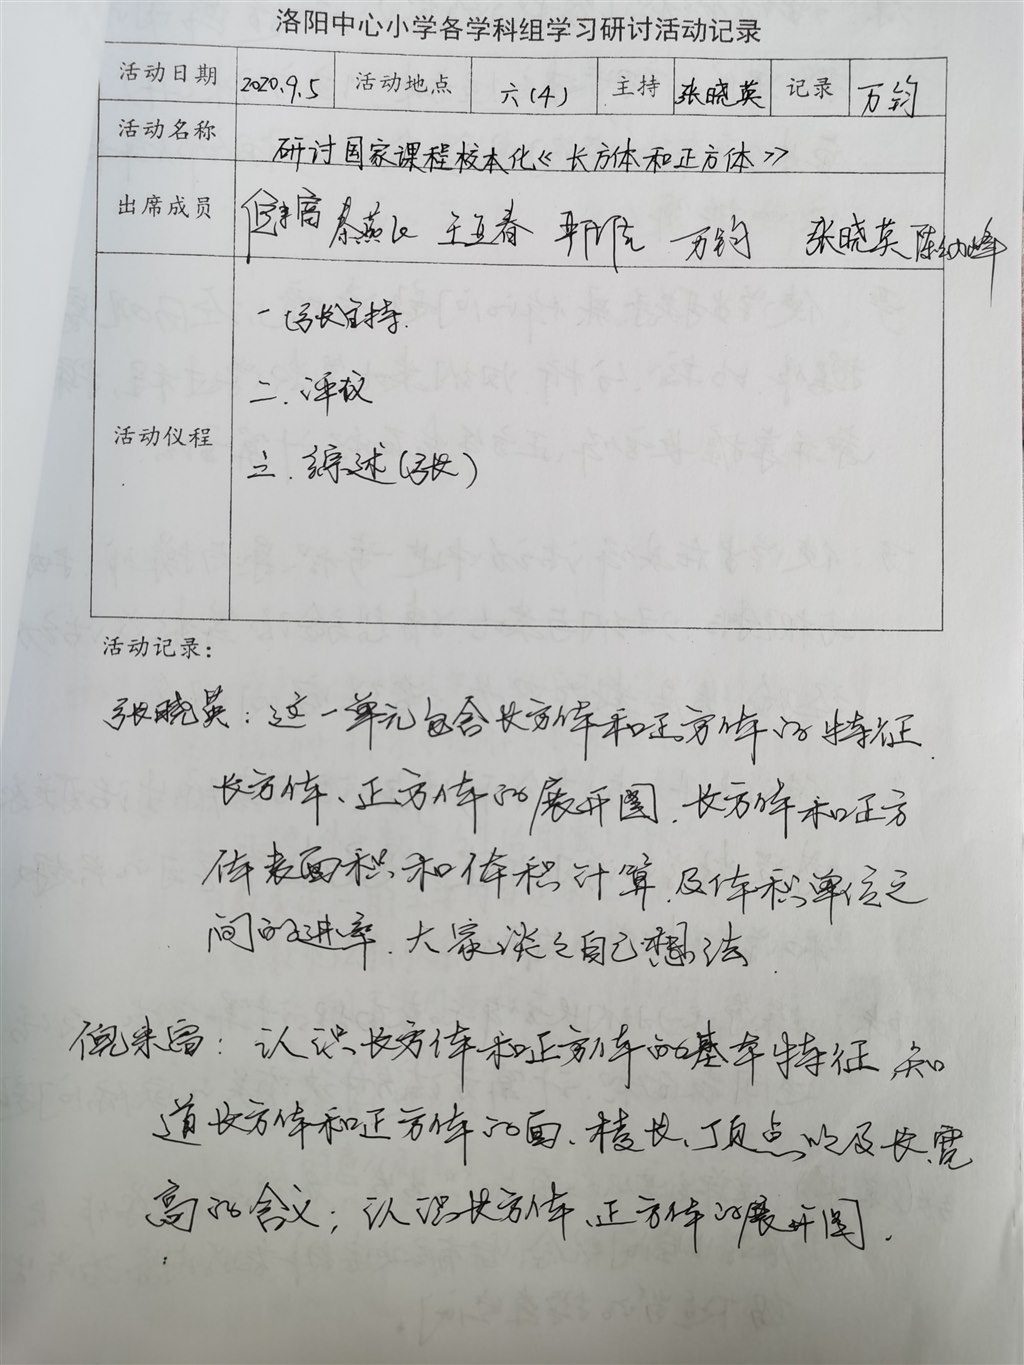 洛阳中心小学各学科组学习研讨活动记录
活动日期 2020.9.5 活动地点 六（4） 主持 张晓英 记录 万钧
活动名称 研讨国家课程校本化《长方体和正方体》
出席成员 秦燕 万钧 张晓英
活动仪程
一 张主持.
二. 评议
三. 综述(张)
活动记录：
张晓英：这一单元包含长方体和正方体的特征
长方体、正方体的展开图. 长方体和正方
体表面积和体积计算, 及体积单位之
间的进率. 大家谈谈自己想法
倪来富：认识长方体和正方体的基本特征, 知
道长方体和正方体的面、棱长、顶点以及长宽
高的含义；认识长方体、正方体的展开图.